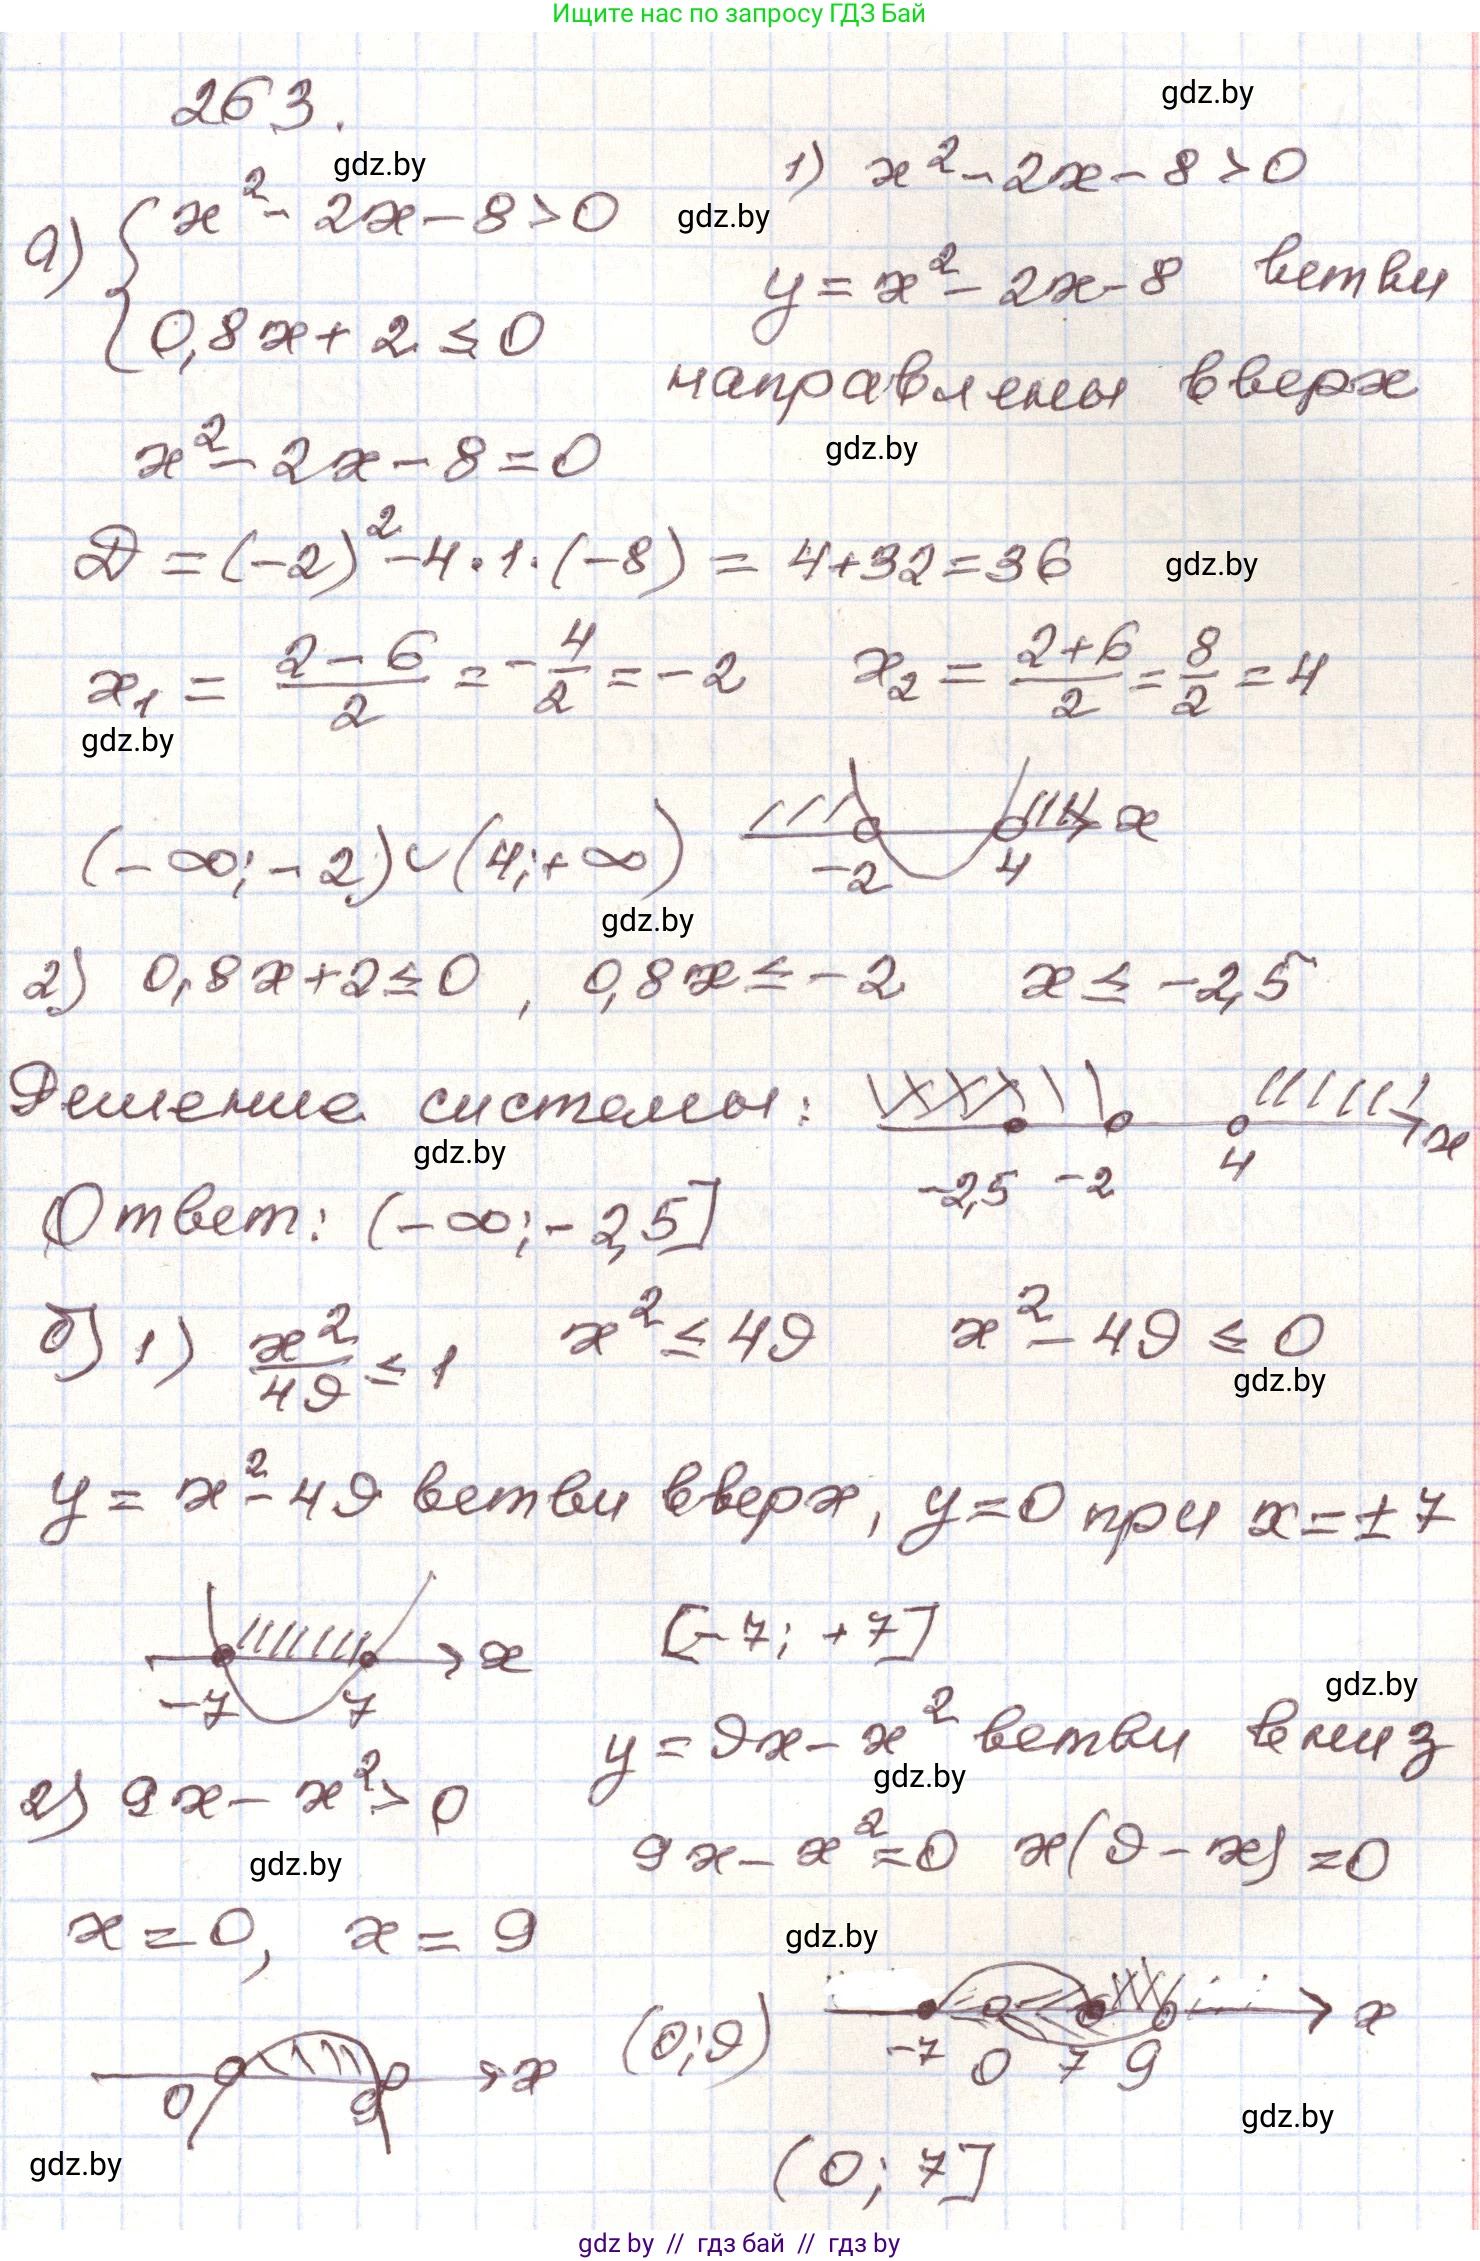 Ищите нас по запросу ГДЗ Бай
263.
gdz.by
gdz.by
а) { x² - 2x - 8 > 0
0,8x + 2 ≤ 0
gdz.by
1) x² - 2x - 8 > 0
y = x² - 2x - 8 ветви
направлены вверх
gdz.by
x² - 2x - 8 = 0
D = (-2)² - 4·1·(-8) = 4+32=36
gdz.by
x₁ = (2-6)/2 = -4/2 = -2 x₂ = (2+6)/2 = 8/2 = 4
gdz.by
(-∞; -2) ∪ (4; +∞) -2 4 x
gdz.by
2) 0,8x+2≤0, 0,8x ≤ -2 x ≤ -2,5
Решение системы: -2,5 -2 4 x
gdz.by
Ответ: (-∞; -2,5]
б) 1) x²/49 ≤ 1 x² ≤ 49 x² - 49 ≤ 0
gdz.by
y = x² - 49 ветви вверх, y=0 при x=±7
-7 7 x [-7; +7]
gdz.by
y = 9x - x² ветви вниз
gdz.by
2) 9x - x² > 0
9x - x² = 0 x(9-x) = 0
gdz.by
x = 0, x = 9
gdz.by
0 9 x (0; 9) -7 0 7 9 x
gdz.by
gdz.by
(0; 7]
gdz.by // гдз бай // гдз by